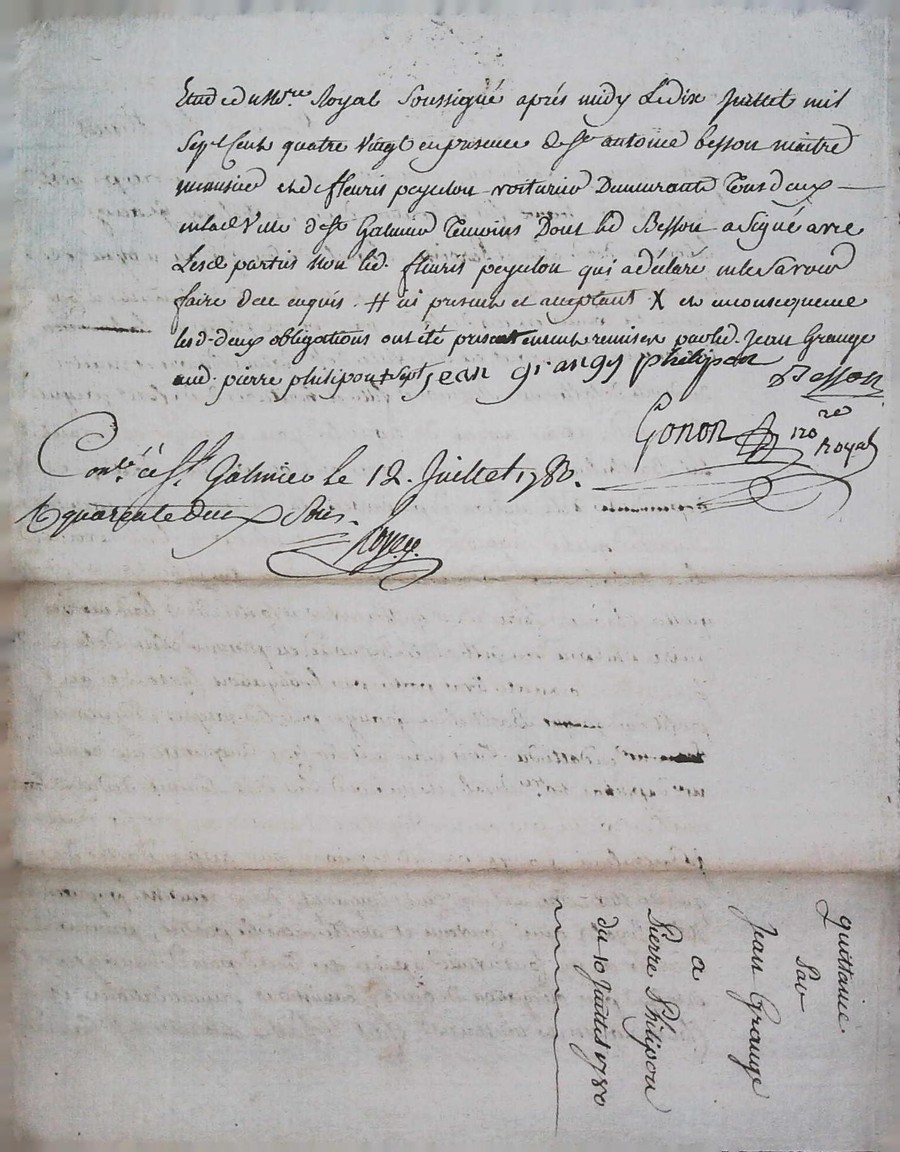 Etude du No.re Royal Soussigné aprés midy Le dix Juillet mil
Sept Cent quatre Vingt en presence de Sr antoine besson maitre
menuisier et de fleuris peyculon voiturier Demeurants Tous deux
en lad Ville de St Galmier Temoins Dont led Besson a Signé avec
Lesd parties non led. fleuris peyculon qui a déclaré ne le Savoir
faire de ce enquis. # ici present et acceptant X et en consequence
lesd. deux obligations ont été presentement remises par led. Jean Grange
aud. pierre philipon
jean grangy philipon
Besson
Gonon no.re Royal
Con.lé à St. Galmier le 12. Juillet 1780.
R quarente deux Sols.
quittance
Par
Jean Grange
a
Pierre Philipon
du 10 Juillet 1780